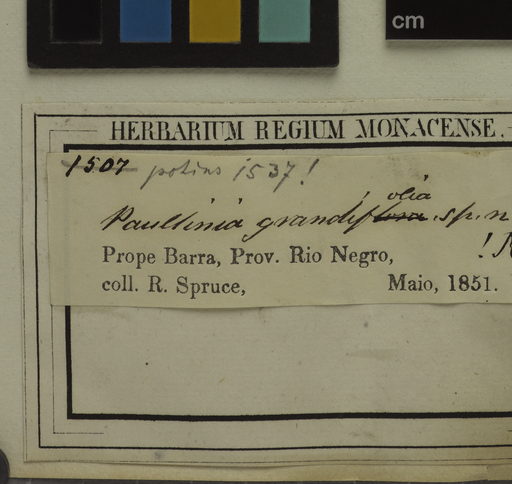 cm
HERBARIUM REGIUM MONACENSE.
1507 potius 1537!
olia
Paullinia grandiflora. sp. n
Prope Barra, Prov. Rio Negro, !
coll. R. Spruce, Maio, 1851.